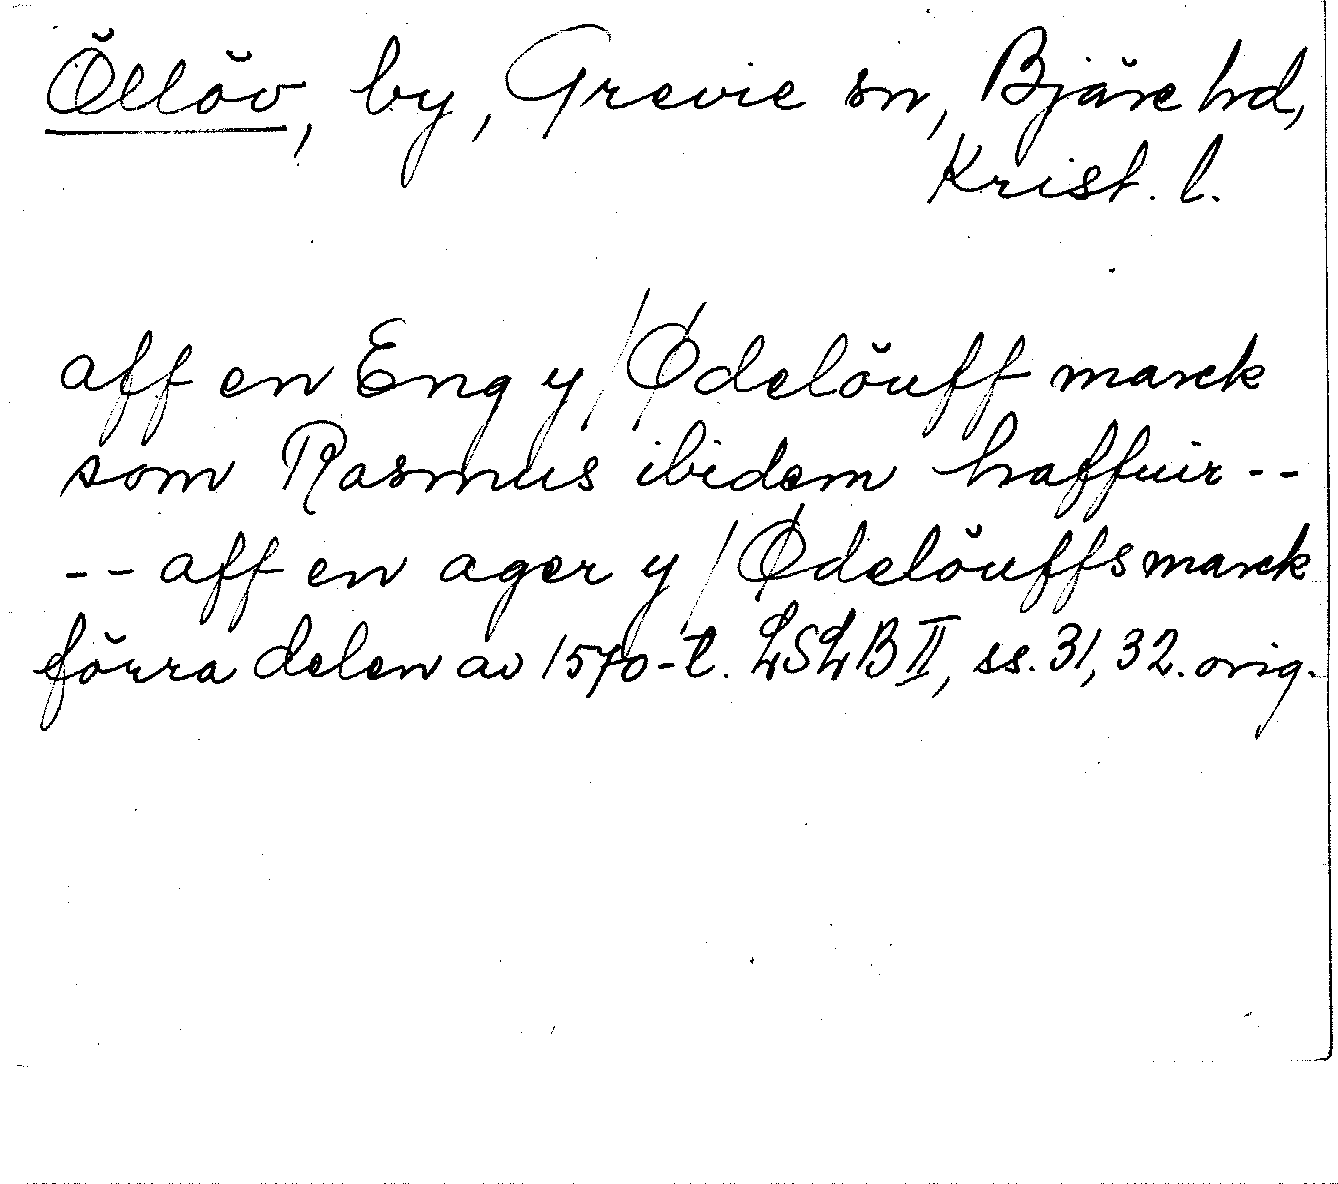 Öllöv, by, Grevie sn, Bjäre hd,
Krist. l.
aff en Eng y / Ødelöuff marck
som Rasmus ibidem haffuir --
-- aff en ager y / Ødelöuffsmarck
förra delen av 1570-t. LSLB II, ss. 31, 32. orig.